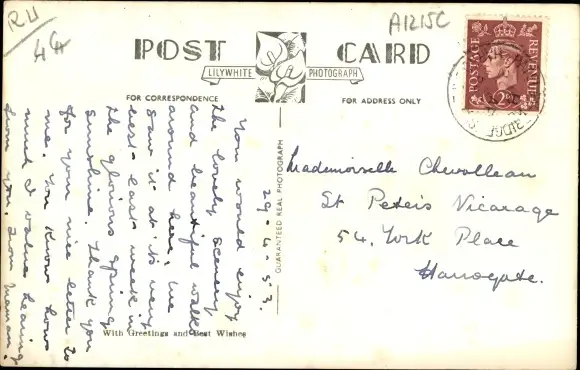 RU
4G
A1215C
POST CARD
LILYWHITE PHOTOGRAPH
FOR CORRESPONDENCE
FOR ADDRESS ONLY
POSTAGE REVENUE
2D
29-4-53.
You would enjoy
the lovely scenery
and beautiful walks
around here, we
saw it at its very
best last week in
the glorious spring
sunshine. Thank you
for your nice letter to
me. You know how
much I value hearing
from you. From
With Greetings and Best Wishes
GUARANTEED REAL PHOTOGRAPH
Mademoiselle Chevolleau
St Peter's Vicarage
54, York Place
Harrogate.